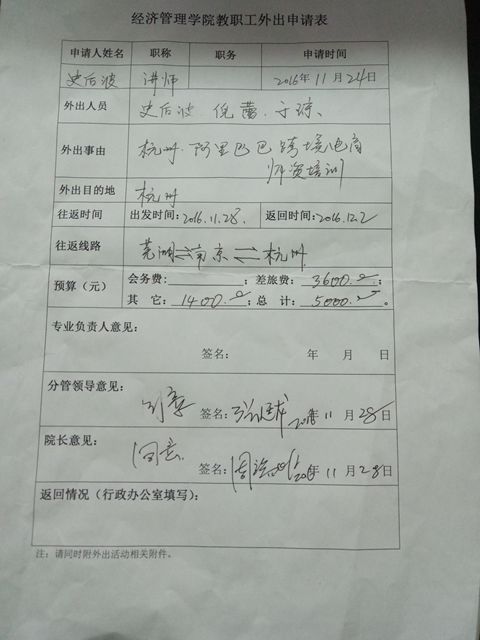 经济管理学院教职工外出申请表
申请人姓名 职称 职务 申请时间
史后波 讲师 2016年11月24日
外出人员 史后波、倪蕾、于琼、
外出事由 杭州·阿里巴巴跨境电商
师资培训
外出目的地 杭州
往返时间 出发时间:2016.11.28. 返回时间:2016.12.2
往返线路 芜湖⇌南京⇌杭州
预算（元） 会务费: ；差旅费:3600. ；
其 它: 1400. ；总 计: 5000. 。
专业负责人意见：
签名： 年 月 日
分管领导意见：
同意 签名： 2016年11月28日
院长意见：
同意 签名： 2016年11月28日
返回情况（行政办公室填写）：
注：请同时附外出活动相关附件。